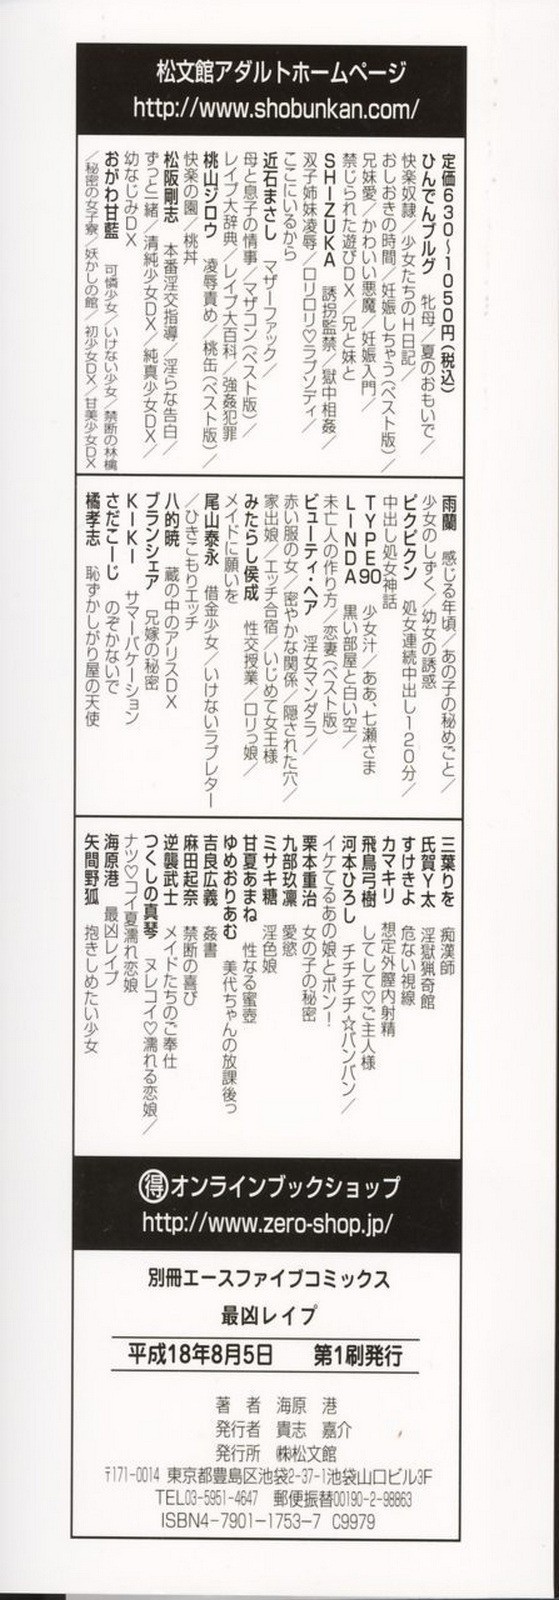 松文館アダルトホームページ
http://www.shobunkan.com/
定価630〜1050円(税込)
ひんでんブルグ 牝母/夏のおもいで/
快楽奴隷/少女たちのH日記/
おしおきの時間/妊娠しちゃう(ベスト版)/
兄妹愛/かわいい悪魔/妊娠入門/
禁じられた遊びDX/兄と妹と
SHIZUKA 誘拐監禁/獄中相姦/
双子姉妹凌辱/ロリロリ♡ラプソディ/
ここにいるから
近石まさし マザーファック/
母と息子の情事/マザコン(ベスト版)/
レイプ大辞典/レイプ大百科/強姦犯罪
桃山ジロウ 凌辱責め/桃缶(ベスト版)/
快楽の園/桃丼
松阪剛志 本番淫交指導/淫らな告白/
ずっと一緒/清純少女DX/純真少女DX/
幼なじみDX
おがわ甘藍 可憐少女/いけない少女/禁断の林檎
/秘密の女子寮/妖かしの館/初少女DX/甘美少女DX
雨蘭 感じる年頃/あの子の秘めごと/
少女のしずく/幼女の誘惑
ピクピクン 処女連続中出し120分/
中出し処女神話
TYPE90 少女汁/ああ、七瀬さま
LINDA 黒い部屋と白い空/
未亡人の作り方/恋妻(ベスト版)
ビューティ・ヘア 淫女マンダラ/
赤い服の女/密やかな関係/隠された穴/
家出娘/エッチ合宿/いじめて女王様
みたらし侯成 性交授業/ロリっ娘/
メイドに願いを
尾山泰永 借金少女/いけないラブレター
/ひきこもりエッチ
八的暁 蔵の中のアリスDX
ブランシェア 兄嫁の秘密
KIKI サマーバケーション
さだこーじ のぞかないで
橘孝志 恥ずかしがり屋の天使
三葉りを 痴漢師
氏賀Y太 淫獄猟奇館
すけきよ 危ない視線
カマキリ 想定外膣内射精
飛鳥弓樹 してして♡ご主人様
河本ひろし チチチチ☆バンバン/
イケてるあの娘とポン!
栗本重治 女の子の秘密
九部玖凛 愛慾
ミサキ糖 淫色娘
甘夏あまね 性なる蜜壺
ゆめおりあむ 美代ちゃんの放課後っ
吉良広義 姦書
麻田起奈 禁断の喜び
逆襲武士 メイドたちのご奉仕
つくしの真琴 ヌレコイ♡濡れる恋娘/
ナツ♡コイ夏濡れ恋娘
海原港 最凶レイプ
矢間野狐 抱きしめたい少女
得オンラインブックショップ
http://www.zero-shop.jp/
別冊エースファイブコミックス
最凶レイプ
平成18年8月5日 第1刷発行
著 者 海原 港
発行者 貴志 嘉介
発行所 ㈱松文館
〒171-0014 東京都豊島区池袋2-37-1池袋山口ビル3F
TEL03-5951-4647 郵便振替00190-2-98863
ISBN4-7901-1753-7 C9979